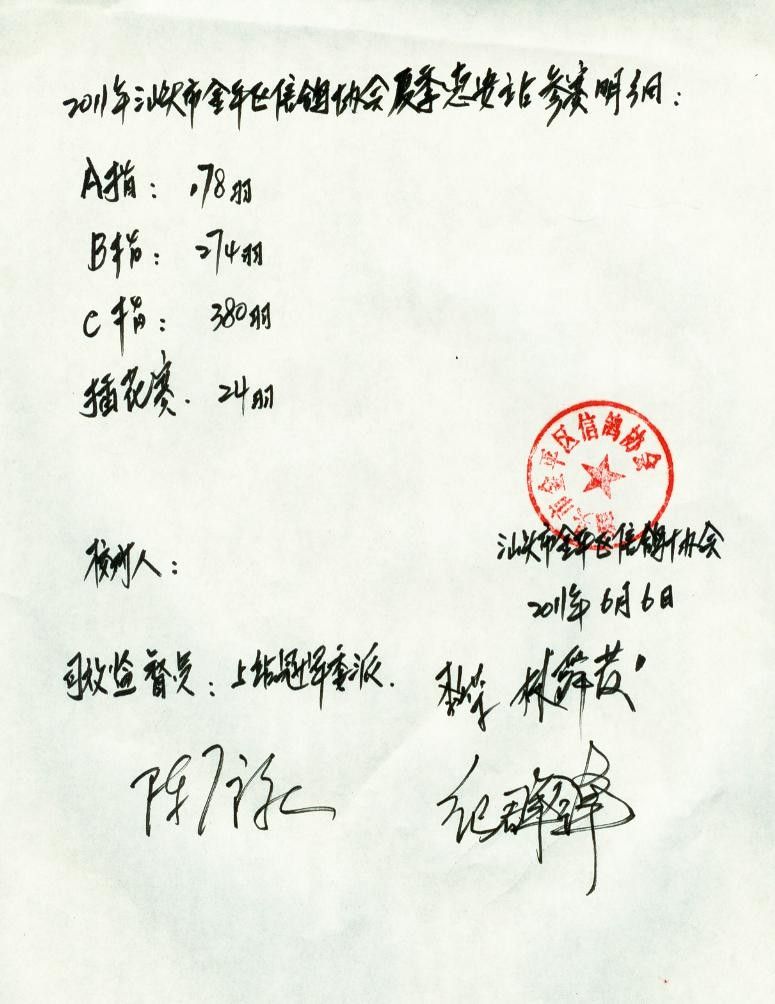 2011年汕头市金平区信鸽协会夏季惠安站参赛明细：
A指： 178羽
B指： 274羽
C指： 380羽
插花赛. 24羽
汕头市金平区信鸽协会
核对人：
汕头市金平区信鸽协会
2011年6月6日
司放监督员：上站冠军委派.